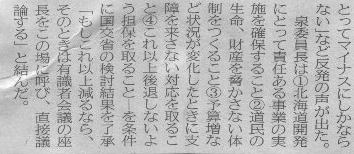 とってマイナスにしかなら
ない」など反発の声が出た。
泉委員長は①北海道開発
にとって責任ある事業の実
施を確保すること②道民の
生命、財産を脅かさない体
制をつくること③予算増な
ど状況が変化したときに支
障を来さない対応を取るこ
と④これ以上後退しないよ
う担保を取ること―を条件
に国交省の検討結果を了承
「もしこれ以上減るなら、
そのときは有識者会議の座
長をこの場に呼び、直接議
論する」と結んだ。